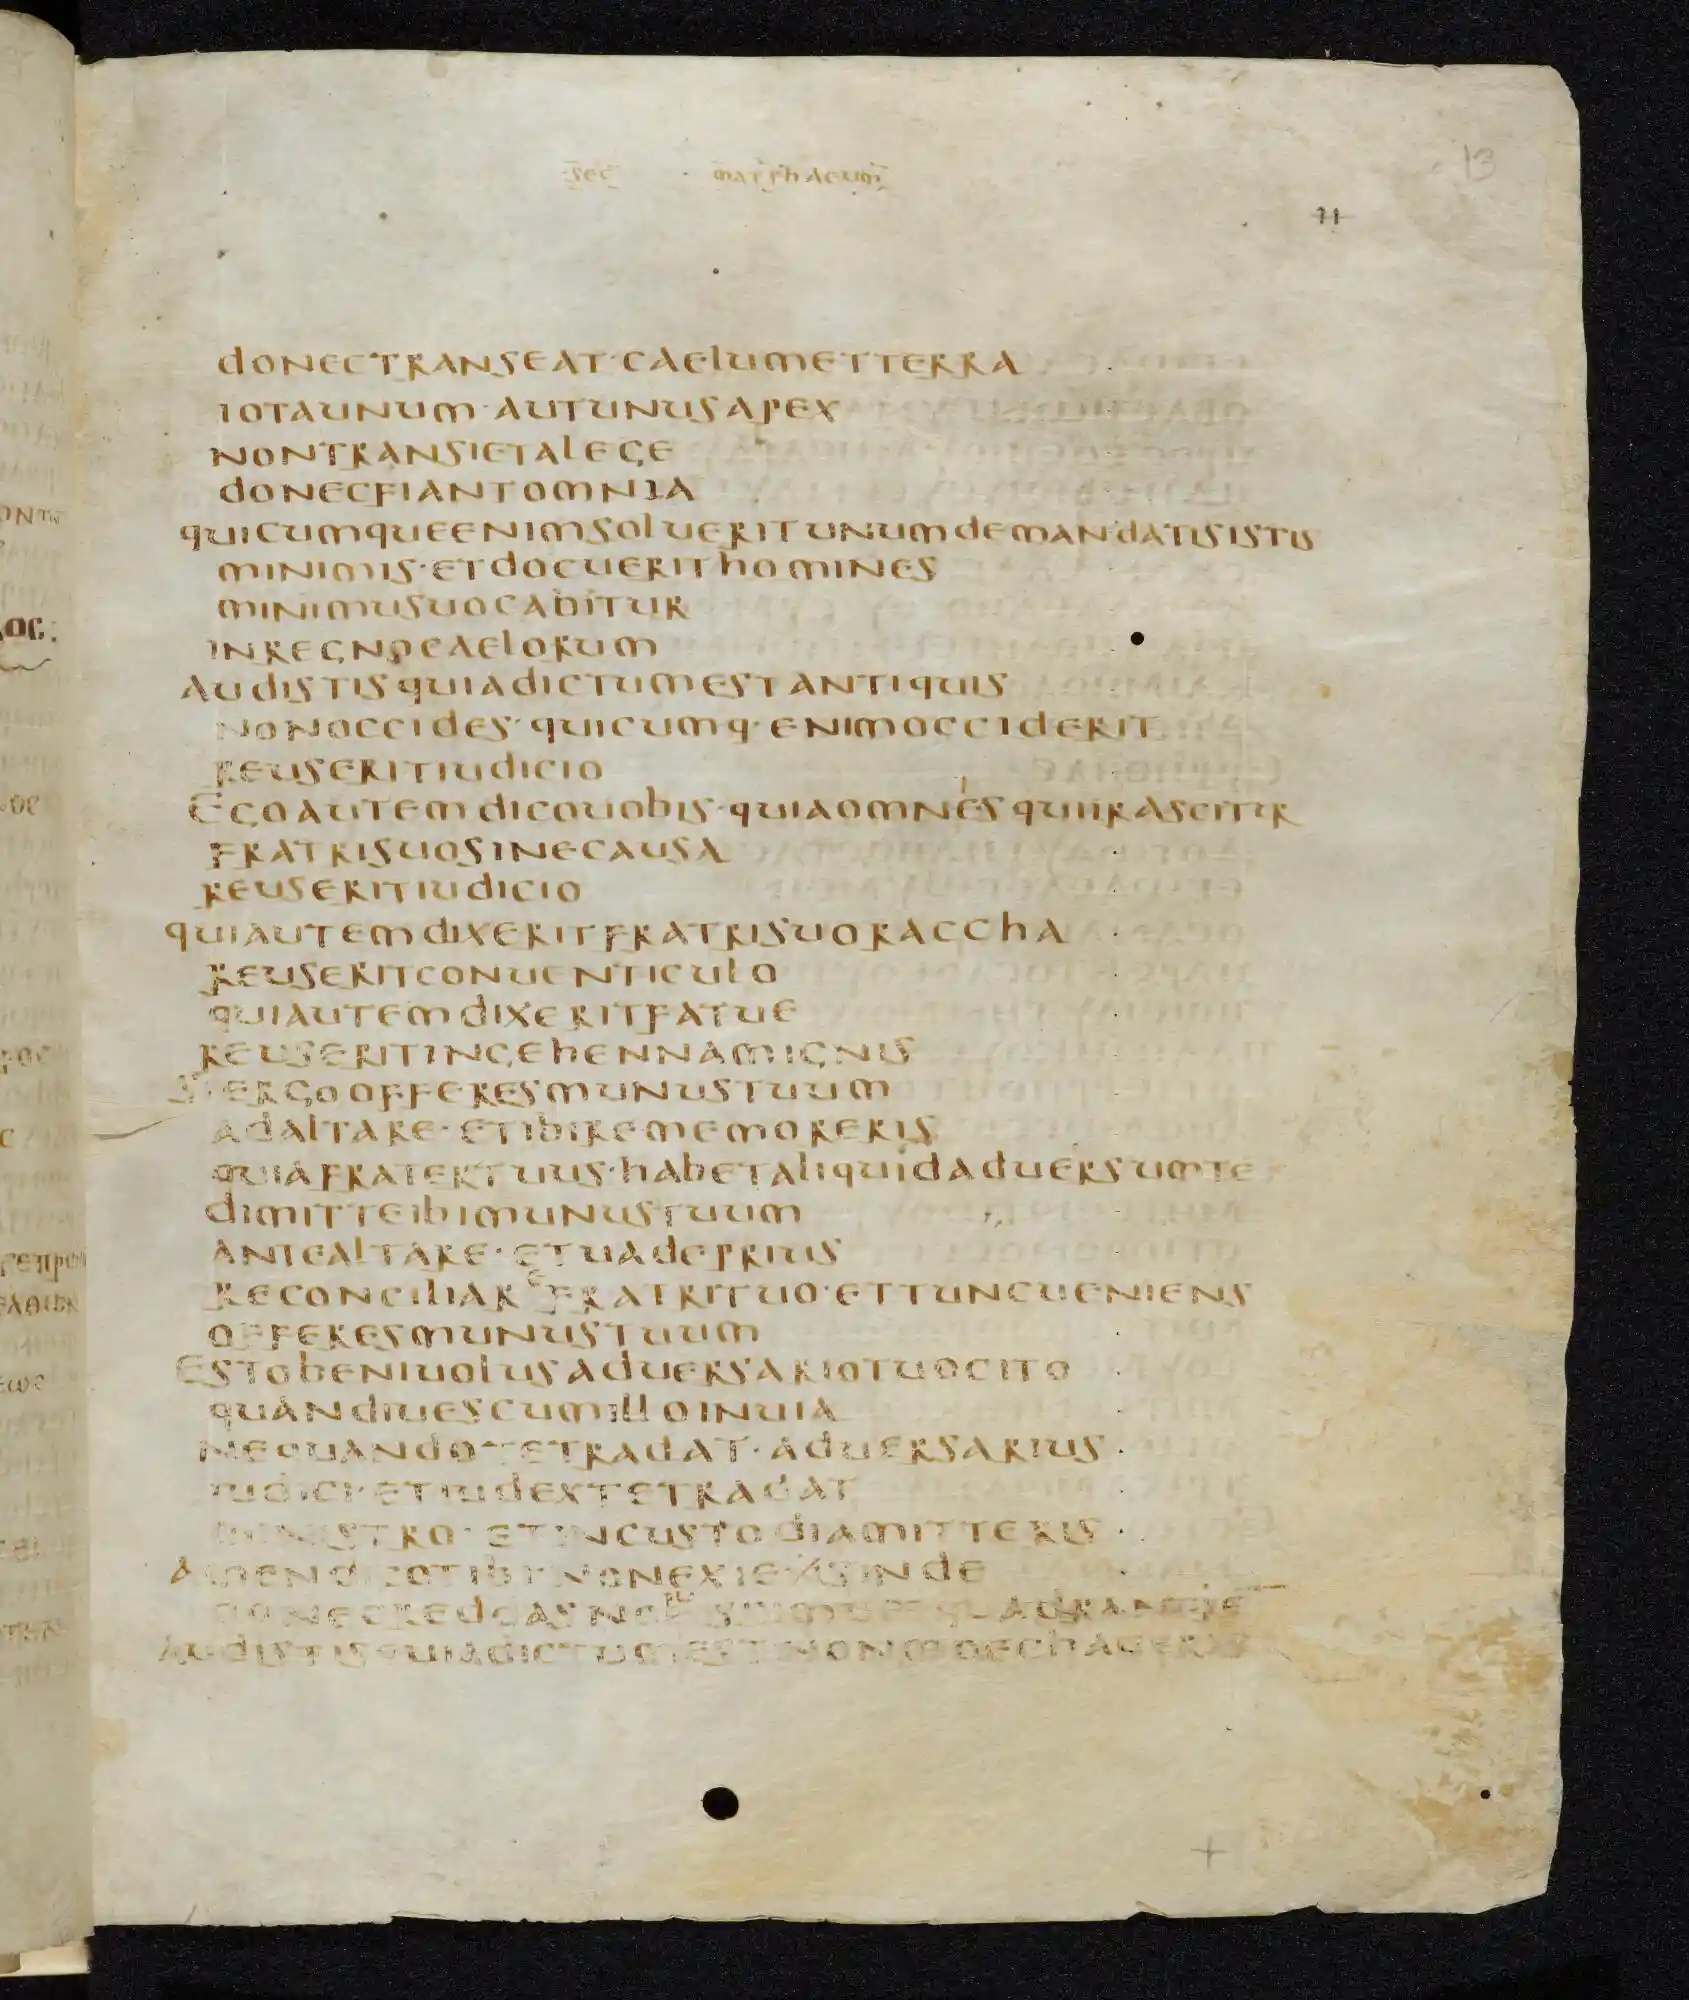 sec · matthaeum
13
11
donectranseat·caelumetterra
iotaunum·autunusapex
nontransietalege
donecfiantomnia
quicumqueenimsolueritunumdemandatisistis
minimis·etdocuerithomines
minimusuocabitur
inregnocaelorum
audistisquiadictumestantiquis
nonoccides·quicumq·enimocciderit
reuseritiudicio
egoautemdicouobis·quiaomnesquiirascitur
fratrisuosinecausa
reuseritiudicio
quiautemdixeritfratrisuoraccha
reuseritconuenticulo
quiautemdixeritfatue
reuseritingehennamignis
siergoofferesmunustuum
adaltare·etibirememoreris
quiafratertuus·habetaliquidaduersumte
dimitteibimunustuum
antealtare·etuadeprius
reconciliarefratrituo·ettuncueniens
offeresmunustuum
estobeniuolusaduersariotuocito
quandiuescumilloinuia
nequandotetradat·aduersarius
iudici·etiudextetradat
ministro·etincustodiamitteris
amendicotibinonexiesinde
donecreddas quadrante
audistisquiadictumestnonmoechaueris